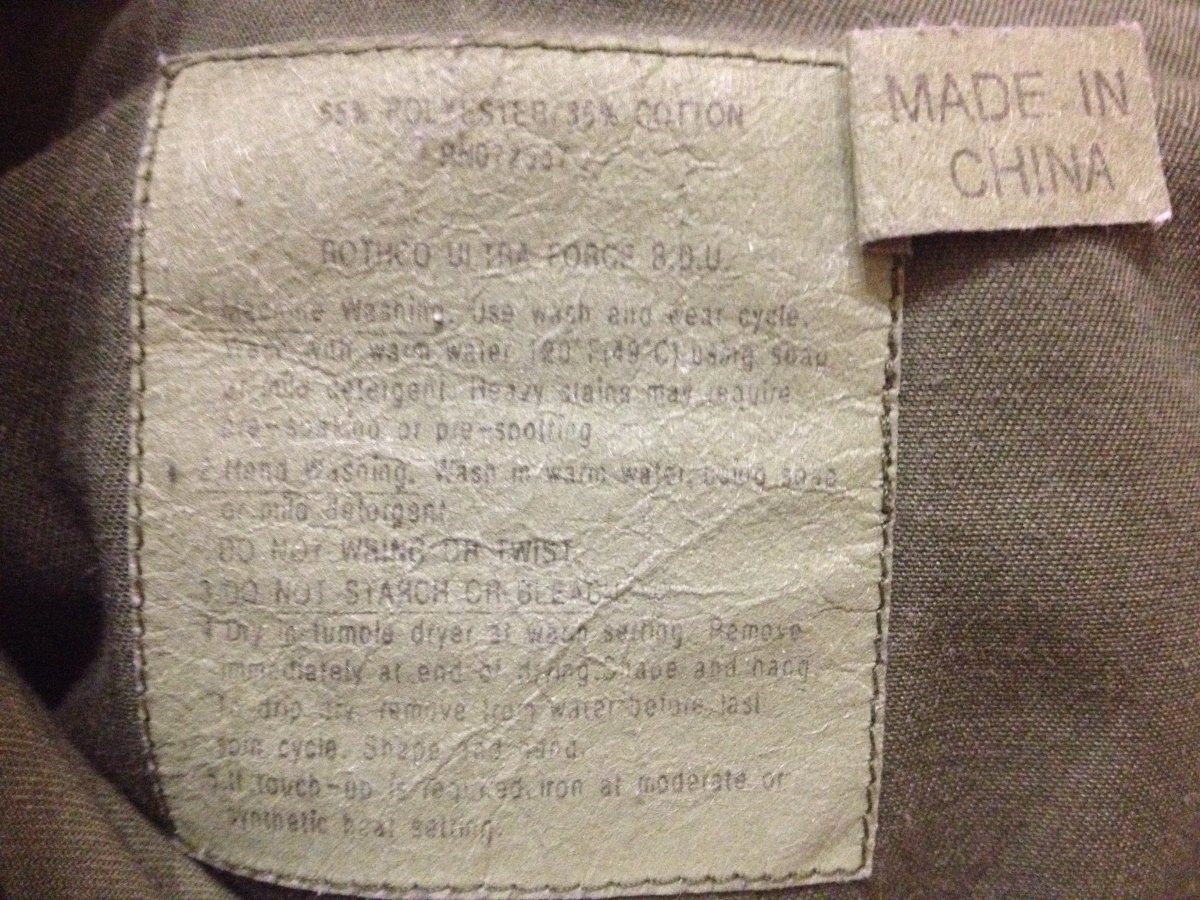 55% POLYESTER/35% COTTON
ROTHCO ULTRA FORCE B.D.U.
Machine Washing. Use wash and wear cycle.
Wash with warm water 120°F(49°C) using soap
or mild detergent. Heavy stains may require
pre-soaking or pre-spotting
2.Hand Washing. Wash in warm water, using soap
or mild detergent.
DO NOT WRING OR TWIST.
3.DO NOT STARCH OR BLEACH.
4.Dry in tumble dryer at wash setting. Remove
immediately at end of drying. Shape and hang.
To drip dry, remove from water before last
spin cycle. Shape and hand.
5.If touch-up is required, iron at moderate or
Synthetic heat setting.
MADE IN
CHINA